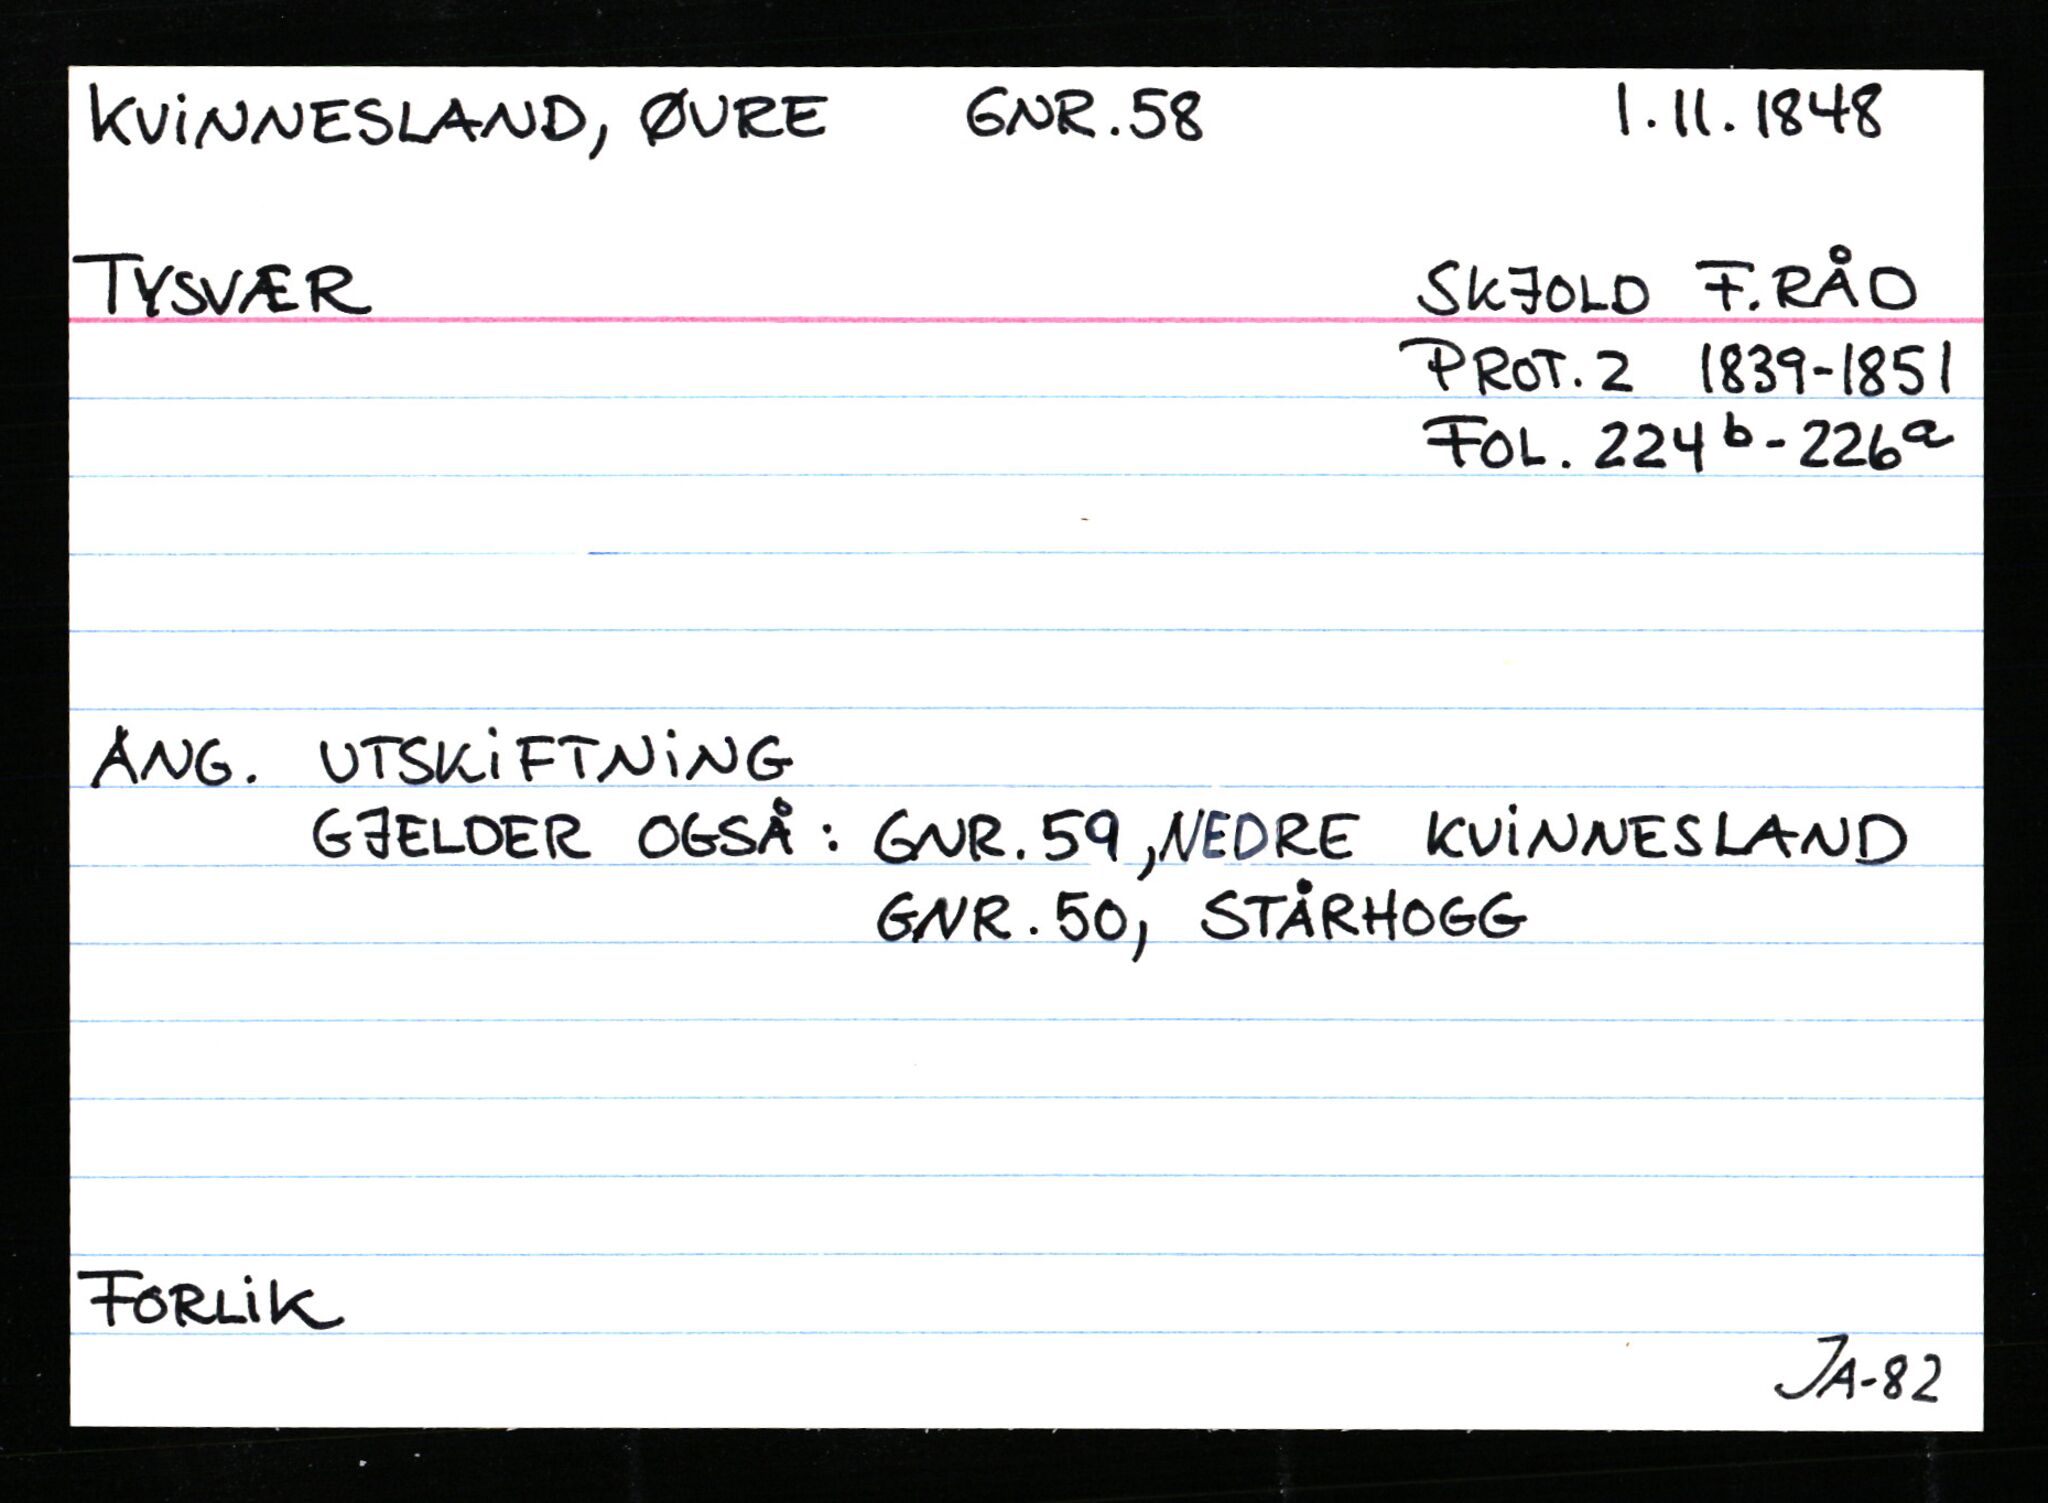 KVINNESLAND, ØVRE GNR. 58 1.11.1848
TYSVÆR SKJOLD F.RÅD
PROT. 2 1839-1851
FOL. 224b - 226a
ANG. UTSKIFTNING
GJELDER OGSÅ: GNR. 59, NEDRE KVINNESLAND
GNR. 50, STÅRHOGG
FORLIK
JA-82